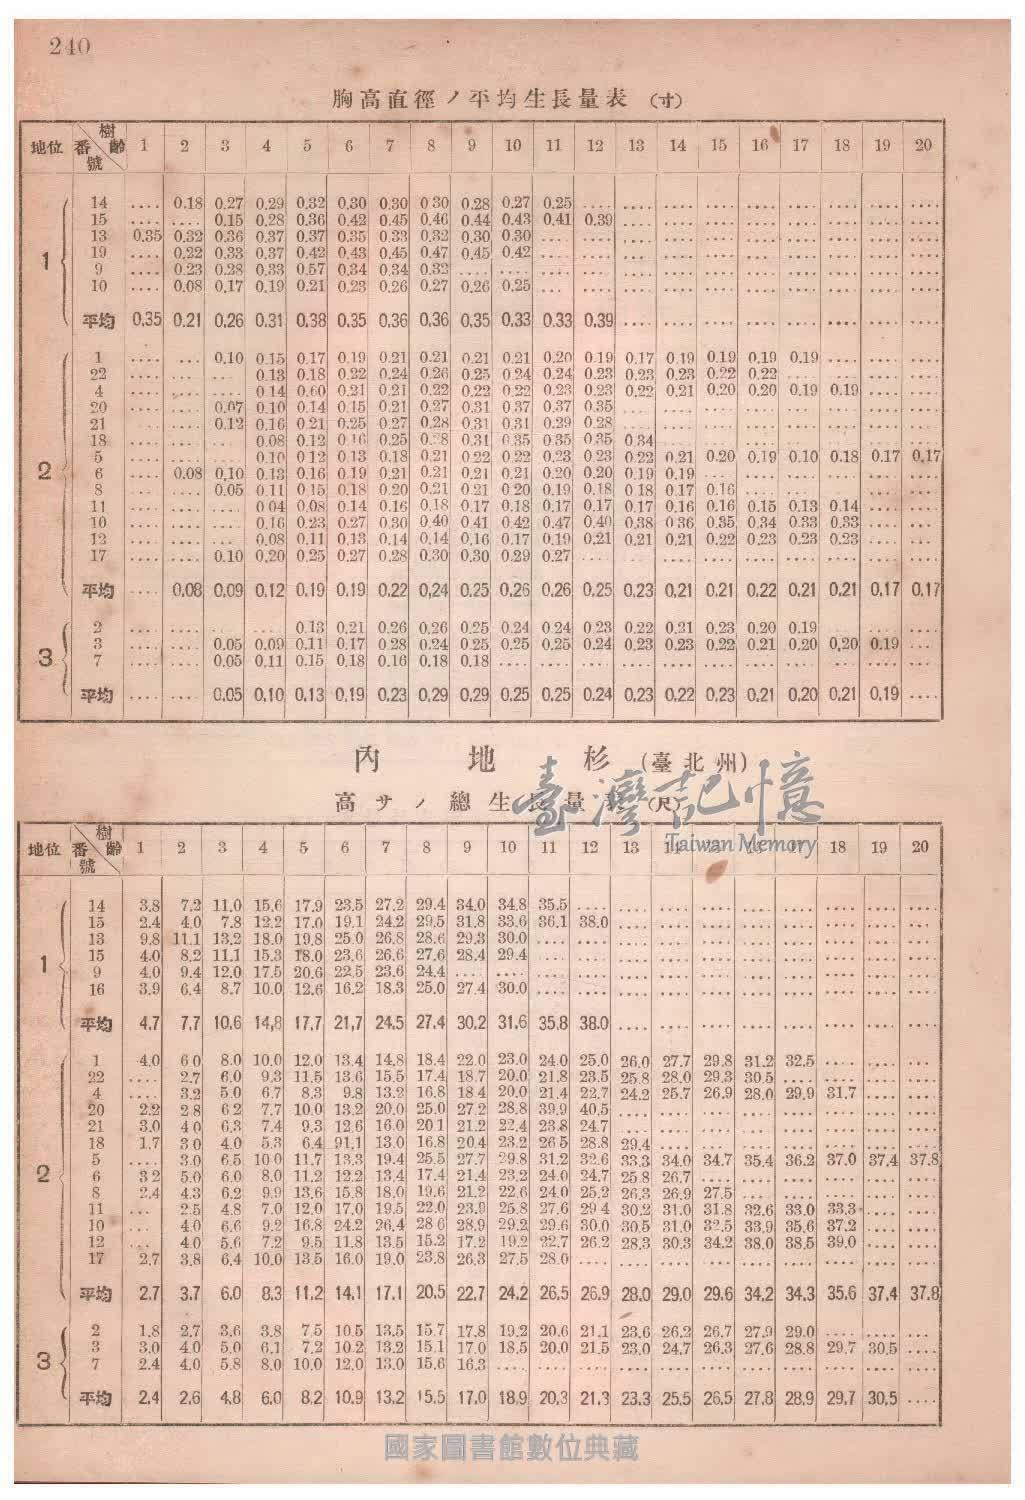 240
胸高直徑ノ平均生長量表 (寸)
地位 番號 樹齡 1 2 3 4 5 6 7 8 9 10 11 12 13 14 15 16 17 18 19 20
1
14 .... 0.18 0.27 0.29 0.32 0.30 0.30 0 30 0.28 0.27 0.25 .... .... .... .... .... .... .... .... ....
15 .... .... 0.15 0.28 0.36 0.42 0.45 0.46 0.44 0.43 0.41 0.39 .... .... .... .... .... .... .... ....
13 0.35 0.32 0.36 0.37 0.37 0.35 0.33 0.32 0.30 0.30 .... .... .... .... .... .... .... .... .... ....
19 .... 0.22 0.33 0.37 0.42 0.43 0.45 0.47 0.45 0.42 .... .... .... .... .... .... .... .... .... ....
9 .... 0.23 0.28 0.33 0.57 0.34 0.34 0.32 .... .... .... .... .... .... .... .... .... .... .... ....
10 .... 0.08 0.17 0.19 0.21 0.23 0.26 0.27 0.26 0.25 ... .... .... .... .... .... .... .... .... ....
平均 0.35 0.21 0.26 0.31 0.38 0.35 0.36 0.36 0.35 0.33 0.33 0.39 .... .... .... .... .... .... .... ....
2
1 .... ... 0.10 0.15 0.17 0.19 0.21 0.21 0.21 0.21 0.20 0.19 0.17 0.19 0.19 0.19 0.19 .... .... ....
22 .... .... ... 0.13 0.18 0.22 0.24 0.26 0.25 0.24 0.24 0.23 0.23 0.23 0.22 0.22 .... .... .... ....
4 .... .... ... 0.14 0.60 0.21 0.21 0.22 0.22 0.22 0.23 0.23 0.22 0.21 0.20 0.20 0.19 0.19 .... ....
20 .... .... 0.07 0.10 0.14 0.15 0.21 0.27 0.31 0.37 0.37 0.35 .... .... .... .... .... .... .... ....
21 .... .... 0.12 0.16 0.21 0.25 0.27 0.28 0.31 0.31 0.29 0.28 .... .... .... .... .... .... .... ....
18 .... .... .... 0.08 0.12 0.16 0.25 0.31 0.35 0.35 0.35 0.34 .... .... .... .... .... .... ....
5 .... .... .... 0.10 0.12 0.13 0.18 0.21 0.22 0.22 0.23 0.23 0.22 0.21 0.20 0.19 0.10 0.18 0.17 0.17
6 .... 0.08 0.10 0.13 0.16 0.19 0.21 0.21 0.21 0.21 0.20 0.20 0.19 0.19 .... .... .... .... .... ....
8 ... .... 0.05 0.11 0.15 0.18 0.20 0.21 0.21 0.20 0.19 0.18 0.18 0.17 0.16 .... .... .... .... ....
11 .... .... .... 0 04 0.08 0.14 0.16 0.18 0.17 0.18 0.17 0.17 0.17 0.16 0.16 0.15 0.13 0.14 .... ....
10 .... .... .... 0.16 0.23 0.27 0.30 0.40 0.41 0.42 0.47 0.40 0.38 0 36 0.35 0.34 0.33 0.33 .... ...
12 .... .... ... 0.08 0.11 0.13 0.14 0.14 0.16 0.17 0.19 0.21 0.21 0.21 0.22 0.23 0.23 0.23 .... ....
17 .... .... 0.10 0.20 0.25 0.27 0.28 0.30 0.30 0.29 0.27 .... .... .... .... .... .... .... .... ....
平均 .... 0.08 0.09 0.12 0.19 0.19 0.22 0.24 0.25 0.26 0.26 0.25 0.23 0.21 0.21 0.22 0.21 0.21 0.17 0.17
3
2 .... .... .... .... 0.13 0.21 0.26 0.26 0.25 0.24 0.24 0.23 0.22 0.21 0.23 0.20 0.19 .... .... ....
3 .... .... 0.05 0.09 0.11 0.17 0.28 0.24 0.25 0.25 0.25 0.24 0.23 0.23 0.22 0.21 0.20 0.20 0.19 ...
7 .... .... 0.05 0.11 0.15 0.18 0.16 0.18 0.18 .... .... .... .... .... .... .... .... .... .... ....
平均 .... .... 0.05 0.10 0.13 0.19 0.23 0.29 0.29 0.25 0.25 0.24 0.23 0.22 0.23 0.21 0.20 0.21 0.19 ....
內地杉 (臺北州)
高サノ總生長量表 (尺)
臺灣記憶
Taiwan Memory
地位 番號 樹齡 1 2 3 4 5 6 7 8 9 10 11 12 13 14 15 16 17 18 19 20
1
14 3.8 7.2 11.0 15.6 17.9 23.5 27.2 29.4 34.0 34.8 35.5 .... .... .... .... .... .... .... .... ....
15 2.4 4.0 7.8 12.2 17.0 19.1 24.2 29.5 31.8 33.6 36.1 38.0 .... .... .... .... .... .... .... ....
13 9.8 11.1 13.2 18.0 19.8 25.0 26.8 28.6 29.3 30.0 .... .... .... .... .... .... .... .... .... ....
15 4.0 8.2 11.1 15.3 18.0 23.6 26.6 27.6 28.4 29.4 .... .... .... .... .... .... .... .... .... ....
9 4.0 9.4 12.0 17.5 20.6 22.5 23.6 24.4 .... .... .... .... .... .... .... .... .... .... .... ....
16 3.9 6.4 8.7 10.0 12.6 16.2 18.3 25.0 27.4 30.0 .... .... .... .... .... .... .... .... .... ....
平均 4.7 7.7 10.6 14.8 17.7 21.7 24.5 27.4 30.2 31.6 35.8 38.0 .... .... .... .... .... .... .... ....
2
1 4.0 6 0 8.0 10.0 12.0 13.4 14.8 18.4 22.0 23.0 24.0 25.0 26.0 27.7 29.8 31.2 32.5 .... .... ....
22 .... 2.7 6.0 9.3 11.5 13.6 15.5 17.4 18.7 20.0 21.8 23.5 25.8 28.0 29.3 30.5 .... .... .... ....
4 .... 3.2 5.0 6.7 8.3 9.8 13.2 16.8 18.4 20.0 21.4 22.7 24.2 25.7 26.9 28.0 29.9 31.7 .... ....
20 2.2 2 8 6.2 7.7 10.0 13.2 20.0 25.0 27.2 28.8 39.9 40.5 .... .... .... .... .... .... .... ....
21 3.0 4 0 6.3 7.4 9.3 12.6 16.0 20.1 21.2 22.4 23.8 24.7 .... .... .... .... .... .... .... ....
18 1.7 3 0 4.0 5.3 6.4 91.1 13.0 16.8 20.4 23.2 26.5 28.8 29.4 .... .... .... .... .... .... ....
5 .... 3.0 6.5 10.0 11.7 13.3 19.4 25.5 27.7 29.8 31.2 32.6 33.3 34.0 34.7 35.4 36.2 37.0 37.4 37.8
6 3 2 5.0 6.0 8.0 11.2 12.2 13.4 17.4 21.4 23.2 24.0 24.7 25.8 26.7 .... .... .... .... .... ....
8 2.4 4.3 6.2 9.9 13.6 15.8 18.0 19.6 21.2 22.6 24.0 25.2 26.3 26.9 27.5 .... .... .... .... ....
11 ... 2.5 4.8 7.0 12.0 17.0 19.5 22.0 23.9 25.8 27.6 29 4 30.2 31.0 31.8 32.6 33.0 33.3 .... ....
10 ... 4.0 6.6 9.2 16.8 24.2 26.4 28 6 28.9 29.2 29.6 30.0 30.5 31.0 32.5 33.9 35.6 37.2 .... ....
12 ... 4.0 5.6 7.2 9.5 11.8 13.5 15.2 17.2 19.2 22.7 26.2 28.3 30.3 34.2 38.0 38.5 39.0 .... ....
17 2.7 3.8 6.4 10.0 13.5 16.0 19.0 23.8 26.3 27.5 28.0 .... .... .... .... .... .... .... .... ....
平均 2.7 3.7 6.0 8.3 11.2 14.1 17.1 20.5 22.7 24.2 26.5 26.9 28.0 29.0 29.6 34.2 34.3 35.6 37.4 37.8
3
2 1.8 2.7 3.6 3.8 7.5 10.5 13.5 15.7 17.8 19.2 20.6 21.1 23.6 26.2 26.7 27.9 29.0 .... .... ....
3 3.0 4.0 5.0 6.1 7.2 10.2 13.2 15.1 17.0 18.5 20.0 21.5 23.0 24.7 26.3 27.6 28.8 29.7 30.5 ....
7 2.4 4.0 5.8 8.0 10.0 12.0 13.0 15.6 16.3 .... .... .... .... .... .... .... .... .... .... ....
平均 2.4 2.6 4.8 6.0 8.2 10.9 13.2 15.5 17.0 18.9 20.3 21.3 23.3 25.5 26.5 27.8 28.9 29.7 30.5 ....
國家圖書館數位典藏